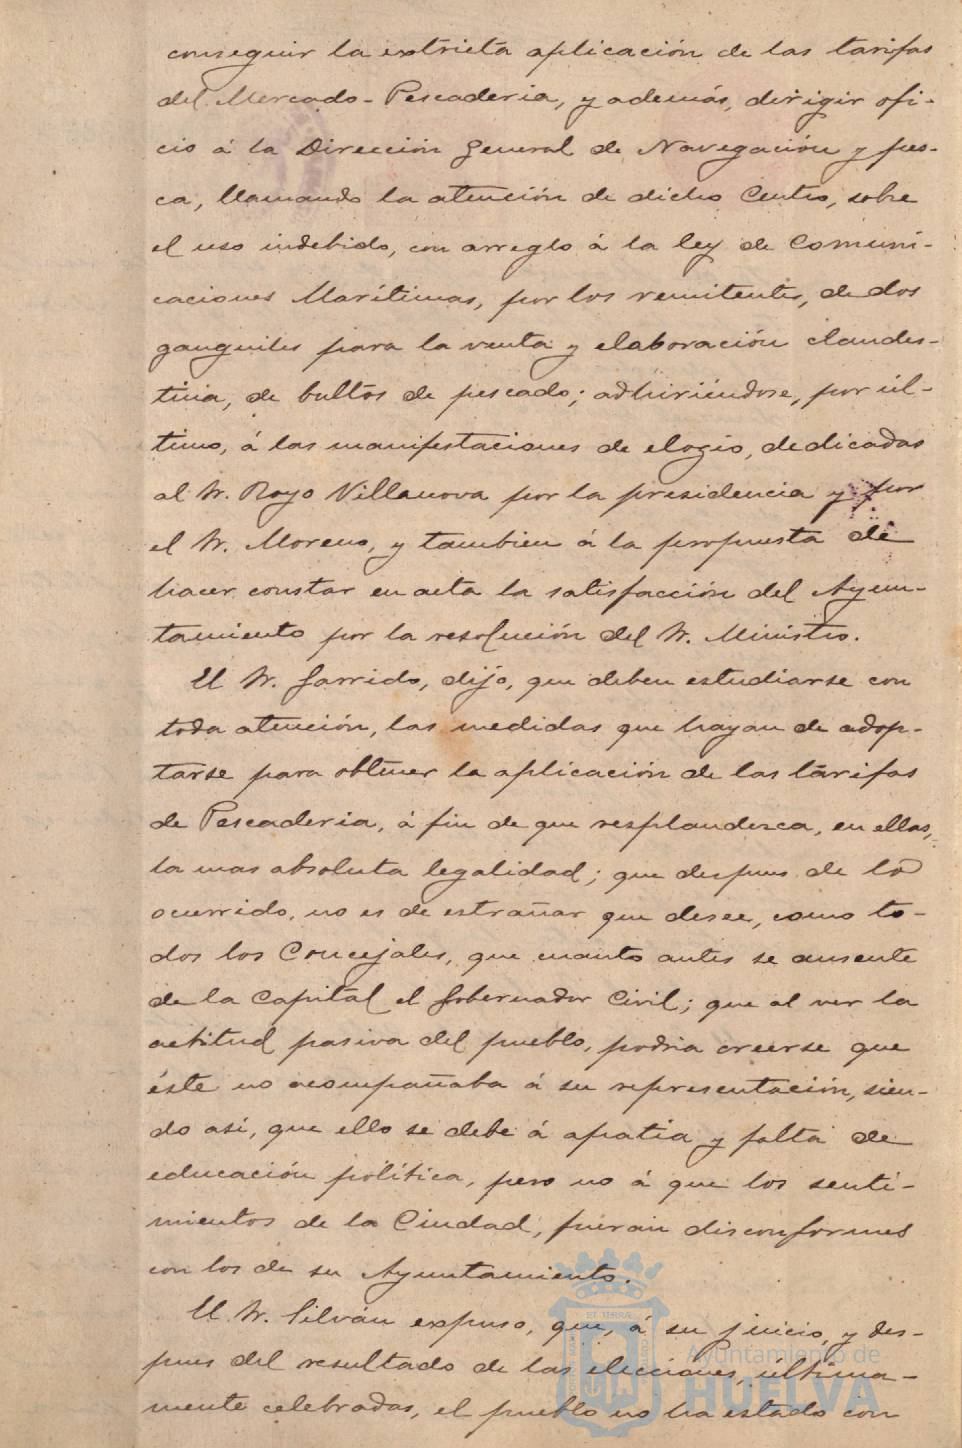 conseguir la extricta aplicación de las tarifas
del Mercado-Pescaderia, y además, dirigir ofi-
cio á la Dirección General de Navegación y pes-
ca, llamando la atención de dicho Centro, sobre
el uso indebido, con arreglo á la ley de Comuni-
caciones Marítimas, por los remitentes, de dos
ganguiles para la venta y elaboración clandes-
tina, de bultos de pescado; adhiriéndose, por úl-
timo, á las manifestaciones de elogio, dedicadas
al Sr. Royo Villanova por la presidencia y por
el Sr. Moreno, y tambien á la propuesta de
hacer constar en acta la satisfacción del Ayun-
tamiento por la resolución del Sr. Ministro.
El Sr. Garrido, dijo, que deben estudiarse con
toda atención, las medidas que hayan de adop-
tarse para obtener la aplicación de las tarifas
de Pescaderia, á fin de que resplandezca, en ellas,
la mas absoluta legalidad; que despues de lo
ocurrido, no es de estrañar que desee, como to-
dos los Concejales, que cuanto antes se ausente
de la Capital el Gobernador Civil; que al ver la
actitud pasiva del pueblo, podria creerse que
éste no acompañaba á su representación, sien-
do así, que ello se debe á apatia y falta de
educación política, pero no á que los senti-
mientos de la Ciudad, fueran disconformes
con los de su Ayuntamiento.
El Sr. Silván expuso, que, á su juicio, y des-
pues del resultado de las elecciones, última-
mente celebradas, el pueblo no ha estado con
Ayuntamiento de
HUELVA